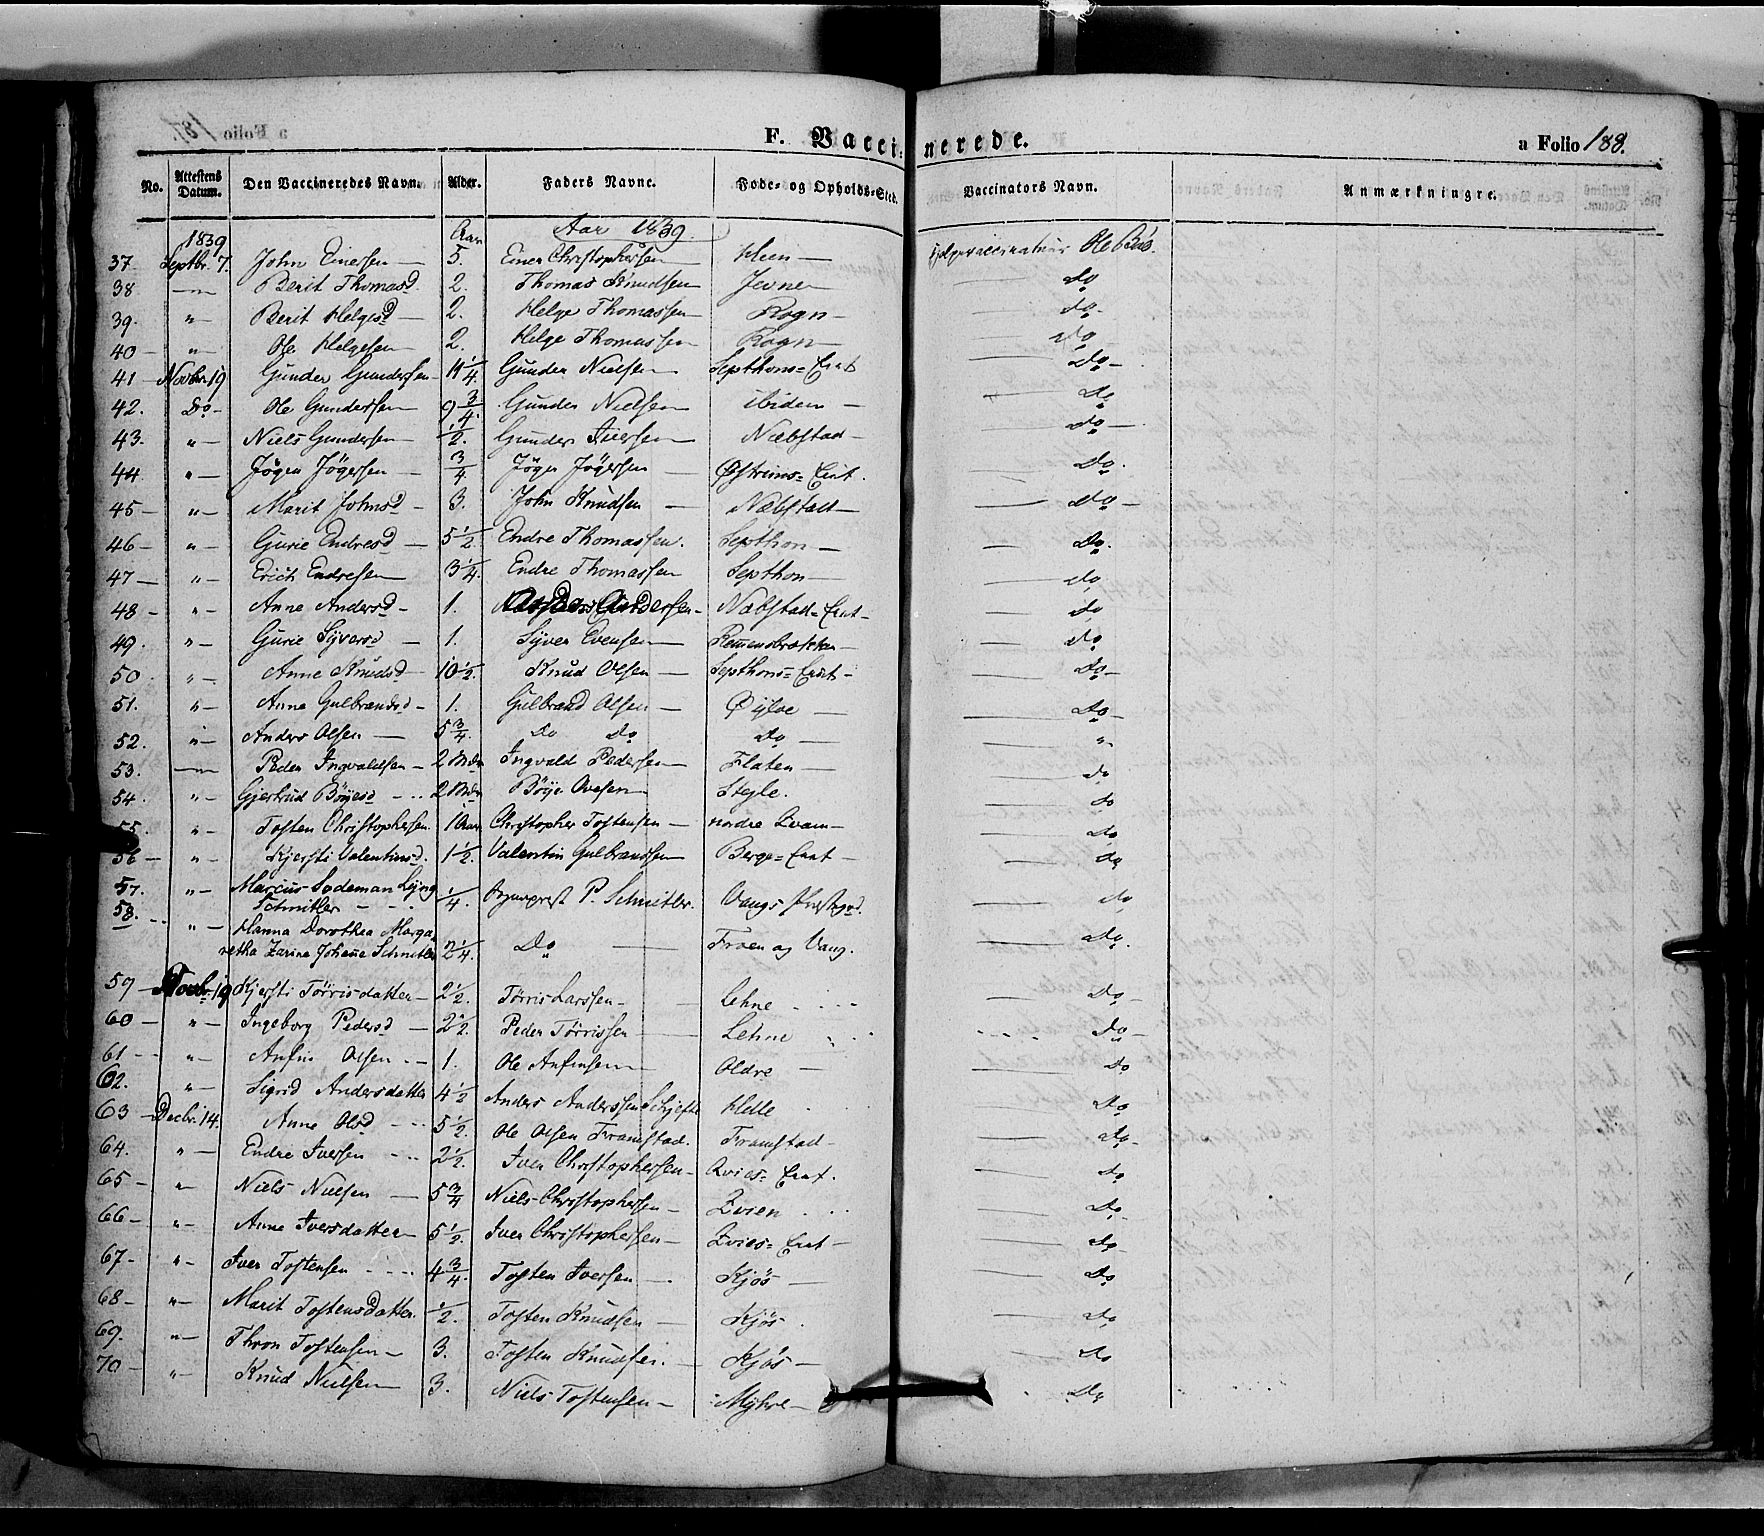 F. Vaccinerede. a Folio 188.
No. Attestens Datum. Den Vaccineredes Navn. Alder. Faders Navne. Føde- og Opholds-Sted. Vaccinators Navn. Anmærkningre.
1839 Aar Aar 1839.
37. Septbr. 7. John Einersen 5. Einer Christophersen Heen Ole Bøe.
38 Berit Thomasd. 2. Thomas Knudsen Jevne Do
39. " Berit Helgesd 2. Helge Thomassen Rogn Do
40 " Ole Helgesen 2. Helge Thomassen Rogn Do
41 Novbr. 19 Gunder Gundersen Gunder Nielsen Septhons= Do
42. Do Ole Gundersen 9 3/4. Gunder Nielsen ibidem Do
43. " Niels Gundersen 1/2. Gunder Iversen Næbstad Do
44 " 3/4 Do.
45 " Marit Johnsd 3. John Knudsen Næbstad Do
46 " Gurie Endresd 5 1/2 Endre Thomassen. Septhon Do.
47 " Erich Endresen 3 1/4. Endre Thomassen Septhon Do
48 " Anne Andersd 1. Andersen Næbstad= Do
49. " Gurie Syversd 1. Syver Evensen Do
50 " Anne Knudsd 10 1/2. Knud Olsen Septhons= Do
51. " Anne Gulbrandsd 1. Gulbrand Olsen Do
52. " Anders Olsen 5 3/4. Do Do Do "
53. Peder Ingvaldsen 2 Mdr Ingvald Pedersen Flaten Do
54. " Gjertrud Bøyesd 2 Mdr Bøye Ovesen Steyle. Do
55. " Tosten Christophersen. 1 Aar Christopher Tostensen nordre Qvam Do
56 " Kjersti Valentinsd. 1 1/2. Valentin Gulbrandsen Berge= Do
57. " Marcus Sodeman Lyng
Schnitler 1/4. P. Schnitler. Vangs Do
58. " Hanna Dorothea Marga
retha Zarine Johanne Schnitler 2 1/4. Do Froen og Vang. Do.
59 Novbr. 19 Kjersti Törrisdatter 2 1/2. Törris Larssen Lehne Do
60 " Ingeborg Pedersd 2 1/2. Peder Törrissen Lehne Do
61 " Anfin Olsen 1. Ole Anfinsen Oldre Do
62. " Sigrid Andersdatter 4 1/2 Anders Anderssen Helle Do
63 Decbr. 14. Anne Olsd 5 1/2. Ole Olsen Framstad. Framstad Do
64. " Endre Iversen 2 1/2. Iver Christophersen Qvies= Do
65 " Niels Nielsen 5 3/4 Niels Christophersen Qvien Do
66 " Anne Iversdatter 5 1/2. Iver Christophersen Qvies= Do
67 " Iver Tostensen 4 3/4. Tosten Iversen Kjös Do
68 " Marit Tostensdatter. 1/2. Tosten Knudsen Kjös. Do
69. " Thron Tostensen 3. Tosten Knudsen. Kjös Do
70 " Knud Nielsen 3. Niels Tostensen Myhre Do